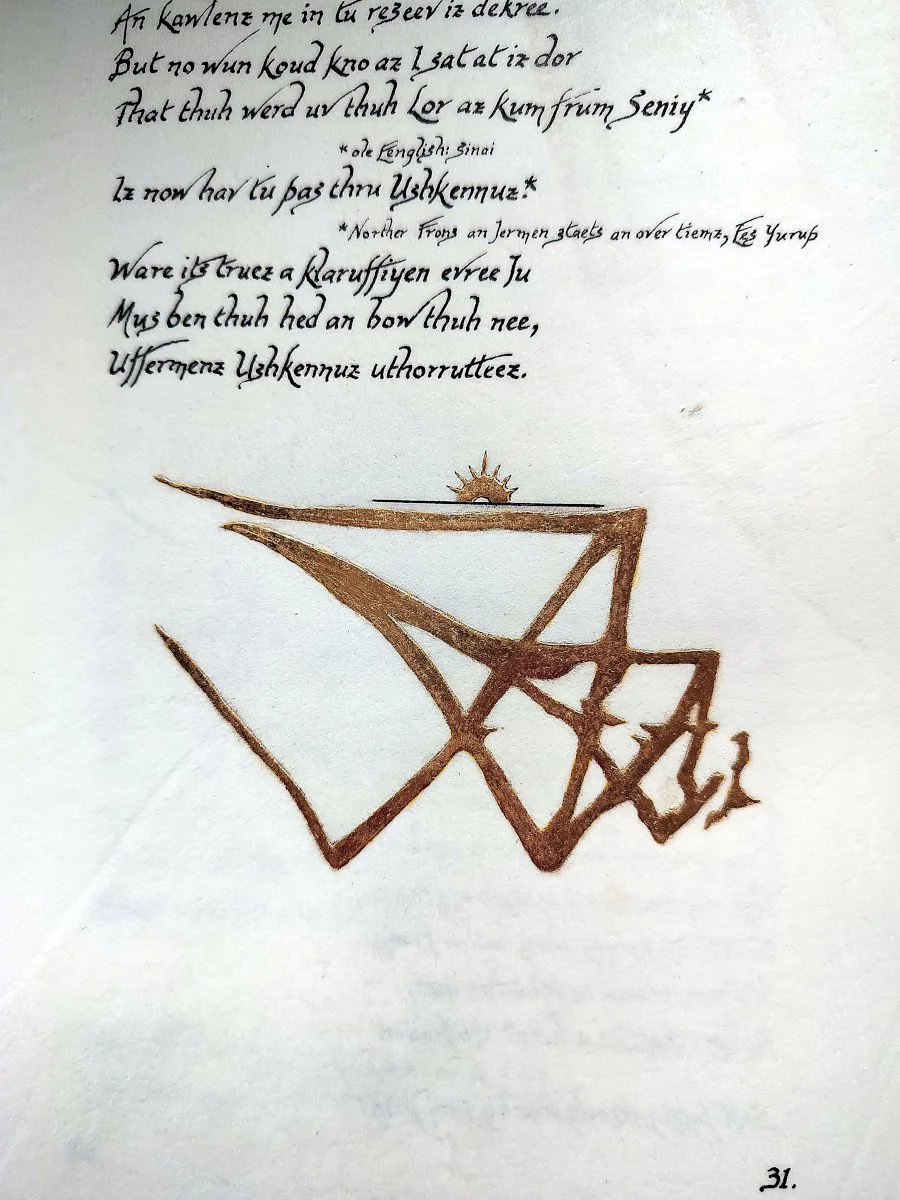 An kawlenz me in tu rezeev iz dekree.
But no wun koud kno az I sat at iz dor
That thuh werd uv thuh Lor az kum frum Seniy*
*ole Eenglish: Sinai
Iz now hav tu pas thru Ushkennuz.*
*Norther Frons an Jermen staets an over tiemz, Ees Yurup
Ware its truez a klaruffiyen evree Ju
Mus ben thuh hed an bow thuh nee,
Uffermenz Ushkennuz uthorrutteez.
31.